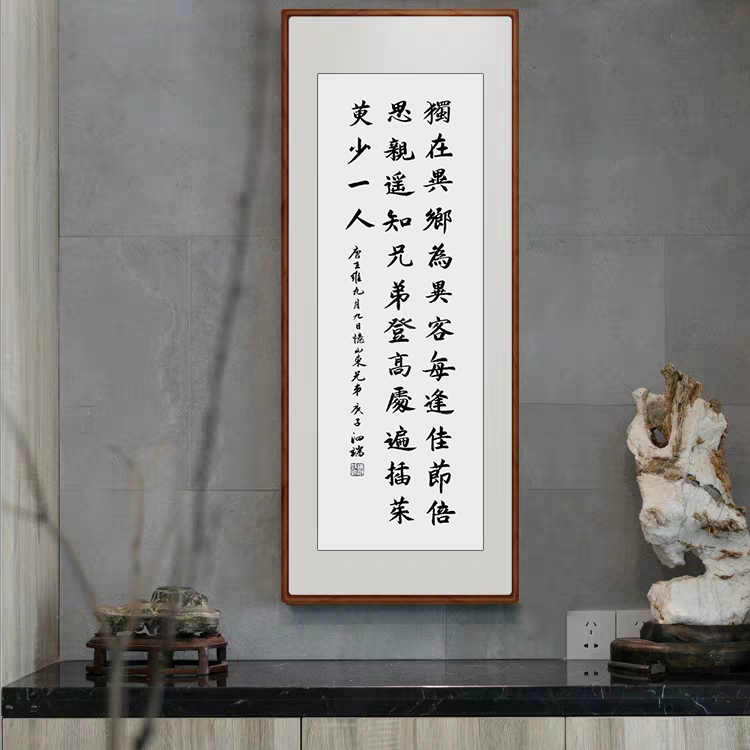 獨在異鄉為異客每逢佳節倍
思親遥知兄弟登高處遍插茱
萸少一人
唐王維九月九日憶山東兄弟 庚子 泗瑞